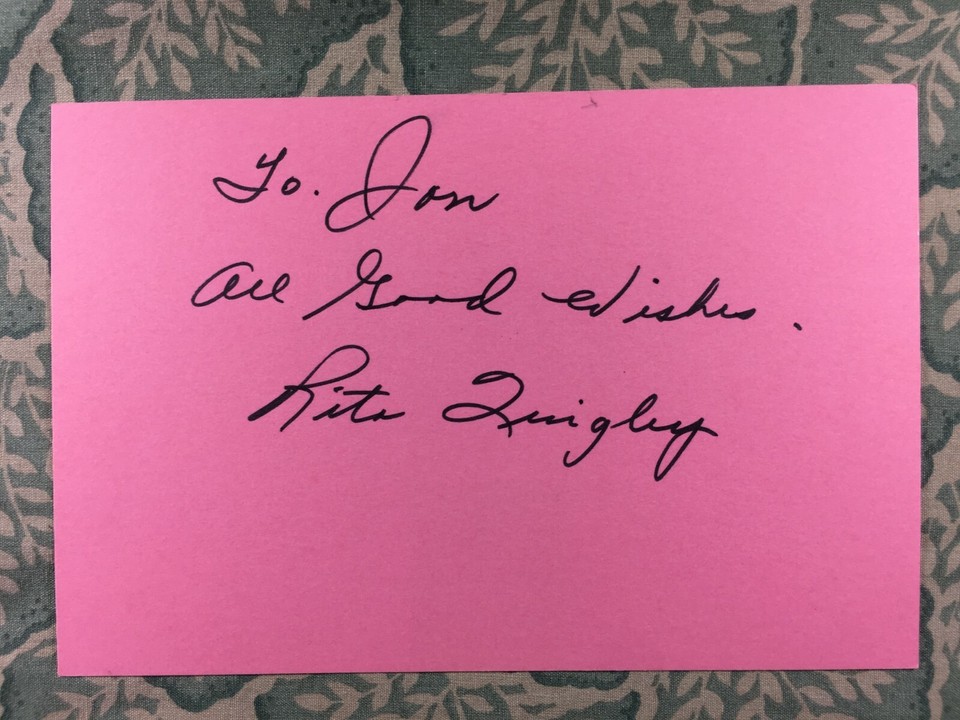 To. Jon
All Good Wishes.
Rita Quigley